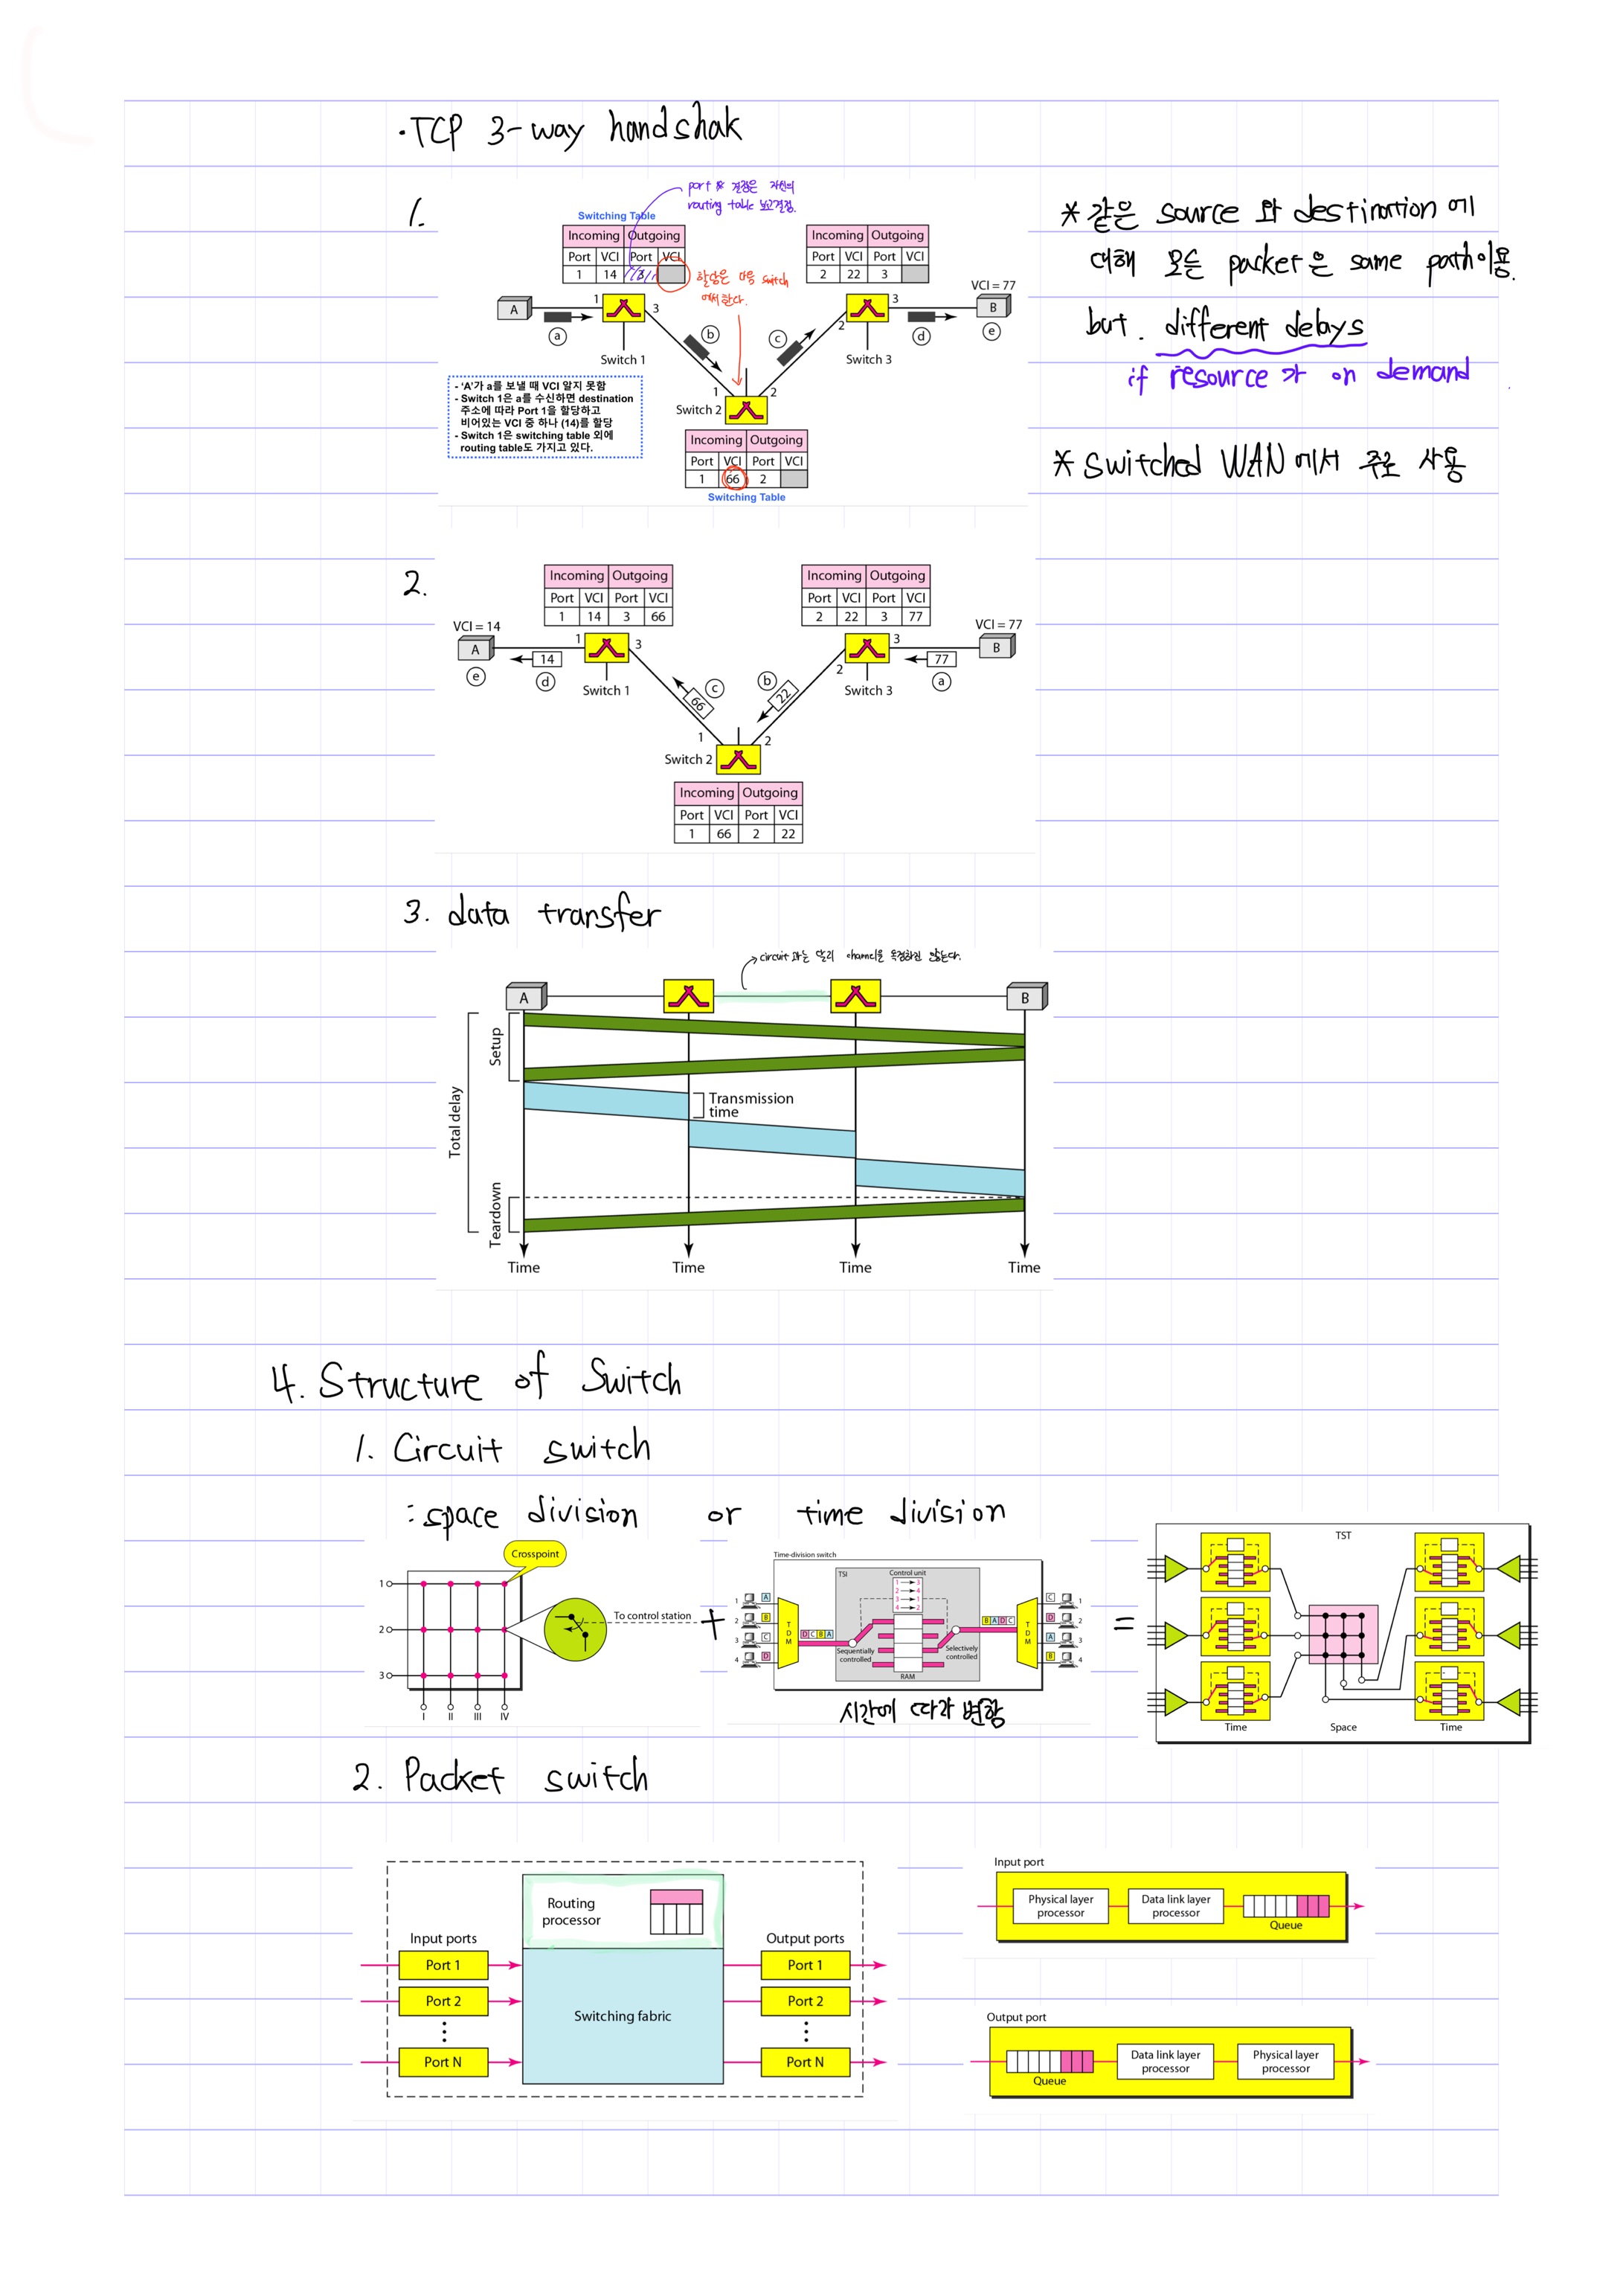 ·TCP 3-way handshak
1.
port 번호 결정은 자신의
routing table 보고결정.
Switching Table
Incoming Outgoing
Port VCI Port VCI
1 14 3
할당은 다음 switch
에서 한다.
Incoming Outgoing
Port VCI Port VCI
2 22 3
VCI = 77
A 1 3
B 3 2
a b c d e
Switch 1
Switch 3
- ‘A’가 a를 보낼 때 VCI 알지 못함
- Switch 1은 a를 수신하면 destination
주소에 따라 Port 1을 할당하고
비어있는 VCI 중 하나 (14)를 할당
- Switch 1은 switching table 외에
routing table도 가지고 있다.
1 2
Switch 2
Incoming Outgoing
Port VCI Port VCI
1 66 2
Switching Table
* 같은 source 와 destination 에
대해 모든 packet은 same path이용.
but. different delays
if resource가 on demand
* switched WAN에서 주로 사용
2.
Incoming Outgoing
Port VCI Port VCI
1 14 3 66
Incoming Outgoing
Port VCI Port VCI
2 22 3 77
VCI = 14
VCI = 77
A 1 3
3 B
14
77
e d
2
a
Switch 1
Switch 3
c b
66 22
1 2
Switch 2
Incoming Outgoing
Port VCI Port VCI
1 66 2 22
3. data transfer
circuit 과는 달리 channel을 독점하진 않는다.
A B
Setup
Transmission
time
Total delay
Teardown
Time Time Time Time
4. Structure of Switch
1. Circuit switch
: space division or time division
Crosspoint
1
2
3
I II III IV
To control station
+
Time-division switch
TSI
Control unit
1 → 3
2 → 4
3 → 1
4 → 2
1 A
2 B
3 C
4 D
TDM
D C B A
Sequentially
controlled
RAM
Selectively
controlled
B A D C
TDM
C 1
D 2
A 3
B 4
시간에 따라 변함
=
TST
Time Space Time
2. Packet switch
Routing
processor
Input ports
Output ports
Port 1 Port 1
Port 2 Port 2
Switching fabric
Port N Port N
Input port
Physical layer
processor
Data link layer
processor
Queue
Output port
Queue
Data link layer
processor
Physical layer
processor